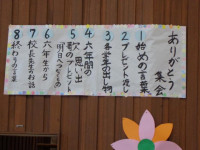 ありがとう集会
1 始めの言葉
2 プレゼント渡し
3 各学年の出し物
4 六年間の思い出
5 歌のプレゼント
6 六年生から
7 校長先生のお話
8 終わりの言葉